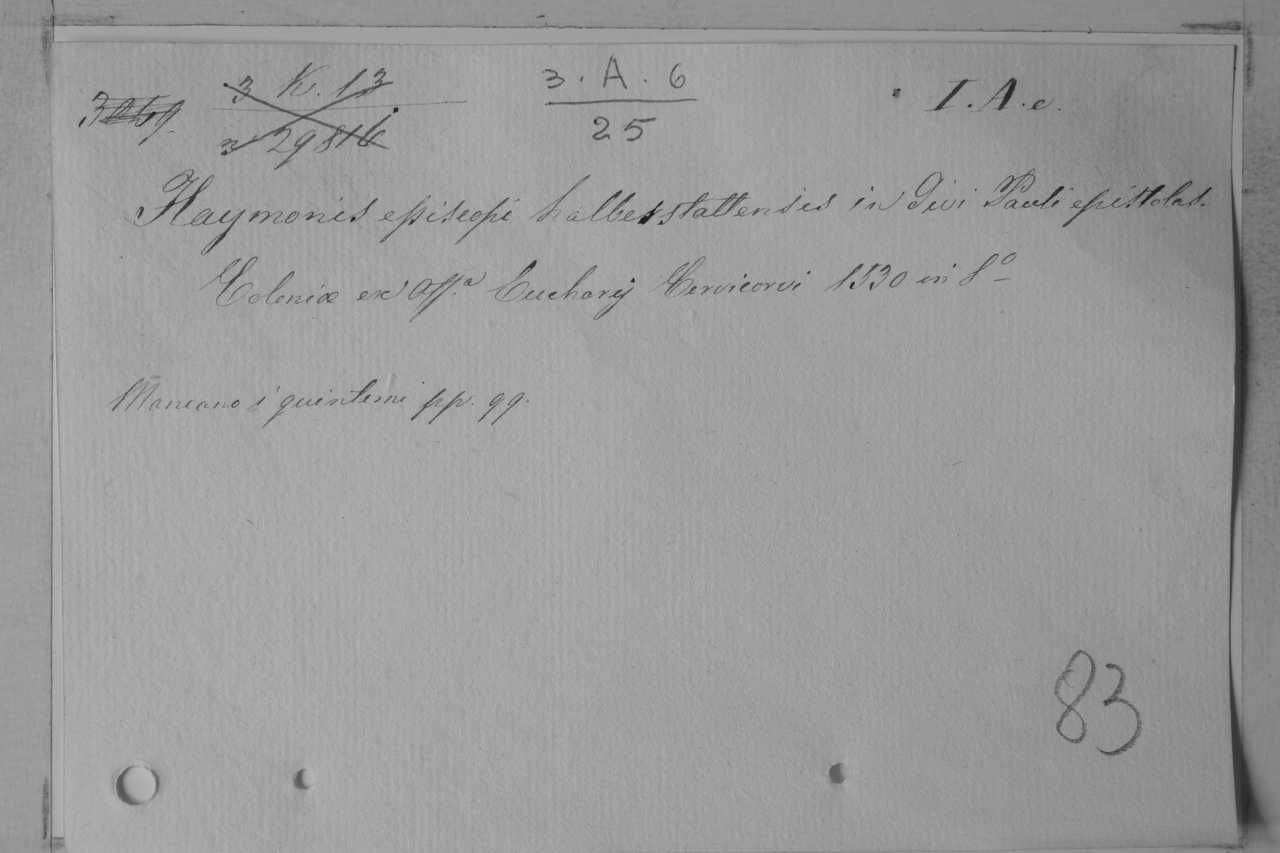 3 K. 13
3 . A . 6
I. A. c.
25
Haymonis episcopi halberstattensis in Divi Pauli epistolas.
Coloniæ ex off.ª Eucharij Cervicorvi 1530 in 8º
Mancano i quinterni pp. qq.
83